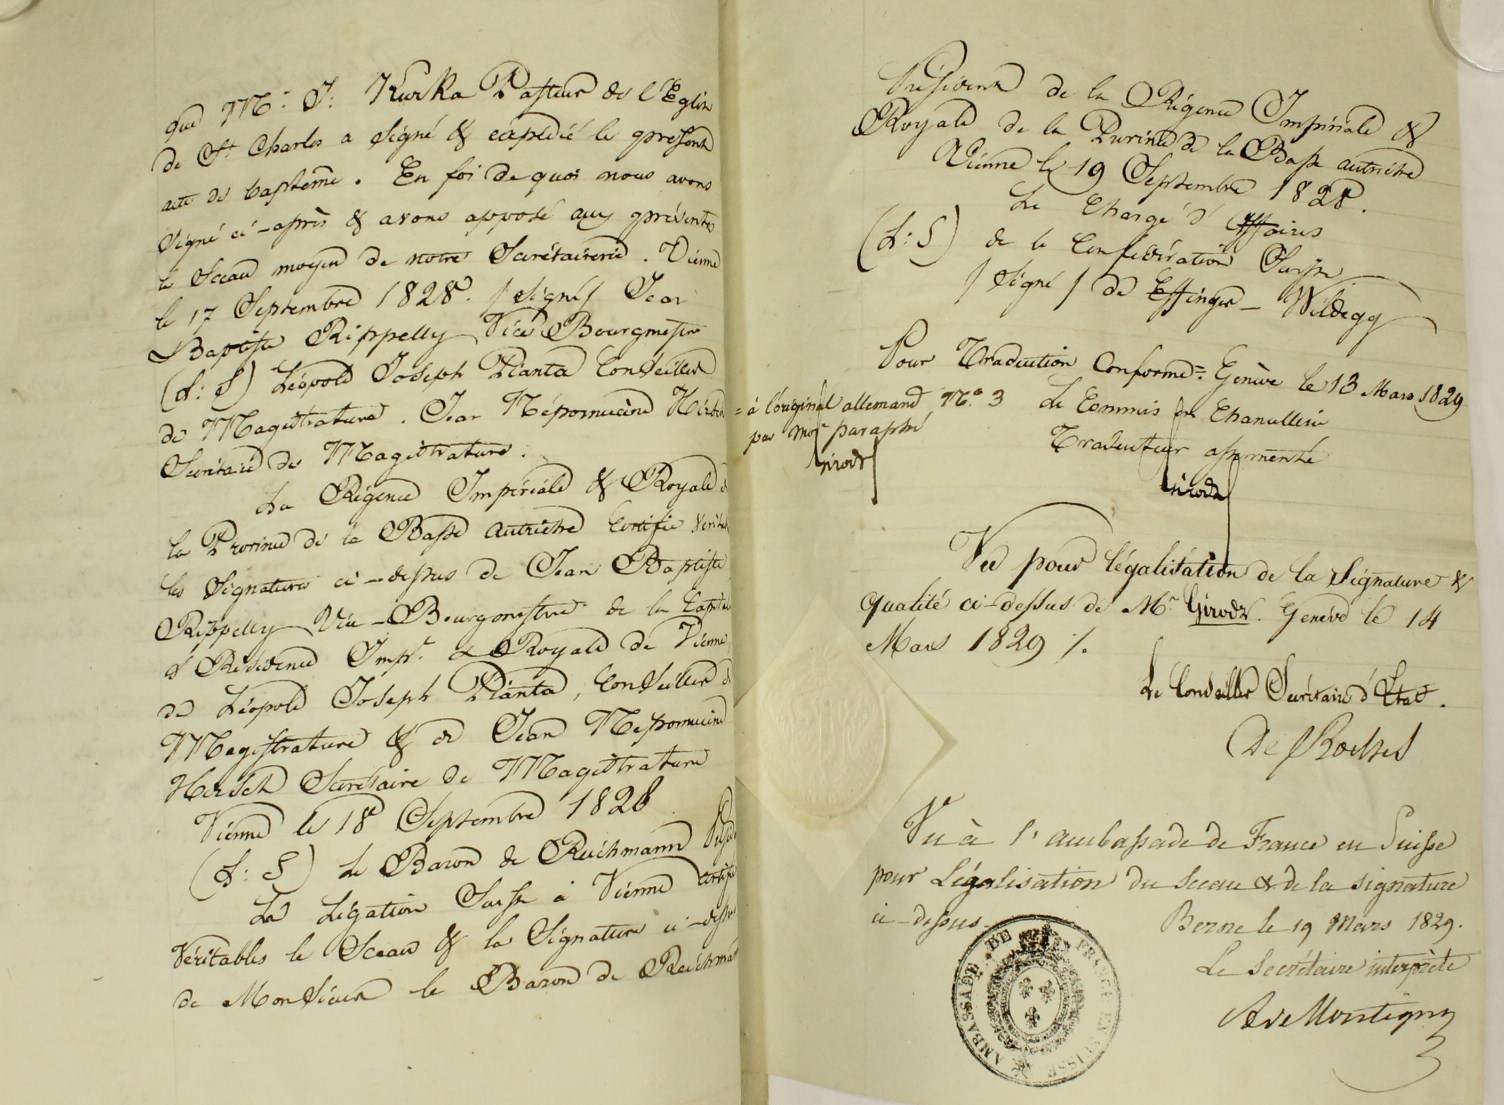 que Mr. J: Kurka Pasteur de l'Eglise
de St Charles a signé & expédié le present
acte de baptême. En foi de quoi nous avons
signé ci-après & avons apposé aux présentes
le Sceau moyen de notre Secrétairerie. Vienne
le 17 Septembre 1828. / signé / Jean
Baptiste Rippelly Vice Bourgmestre
(L: S) Léopold Joseph Planta Conseiller
de Magistrature. Jean Népomucène
Secrétaire de Magistrature.
La Régence Impériale & Royale de
la Province de la Basse autriche Certifie
les Signatures ci-dessus de Jean Baptiste
Rippelly Vice-Bourgmestre de la Capitale
& Résidence Imp. & Royale de Vienne,
de Léopold Joseph Planta, Conseiller de
Magistrature & de Jean Népomucène
Hirsch Secrétaire de Magistrature
Vienne le 18 Septembre 1828
(L: S) Le Baron de Reichmann
La Légation Suisse à Vienne certifie
Véritables le Sceau & la Signature ci-dessus
de Monsieur le Baron de Reichmann
Président de la Régence Impériale &
Royale de la Province de la Basse autriche
Vienne le 19 Septembre 1828.
Le Chargé d'Affaires
(L: S) de la Confédération Suisse
/ signé / de Effinger-Wildegg
Pour Traduction Conforme = Genève le 13 Mars 1829
= à l'original allemand No 3 Le Commis de Chancellerie
par moi paraphé Traducteur assermenté
Girodz Girodz
Vu pour légalisation de la Signature &
qualité ci-dessus de Mr Girodz. Genève le 14
Mars 1829 /.
Le Conseiller Secrétaire d'Etat.
De Roches
Vu à l'ambassade de France en Suisse
pour Légalisation du sceau & de la signature
ci-dessus. Berne le 19 Mars 1829.
Le secrétaire interprète
A de Montigny
AMBASSADE DE FRANCE EN SUISSE